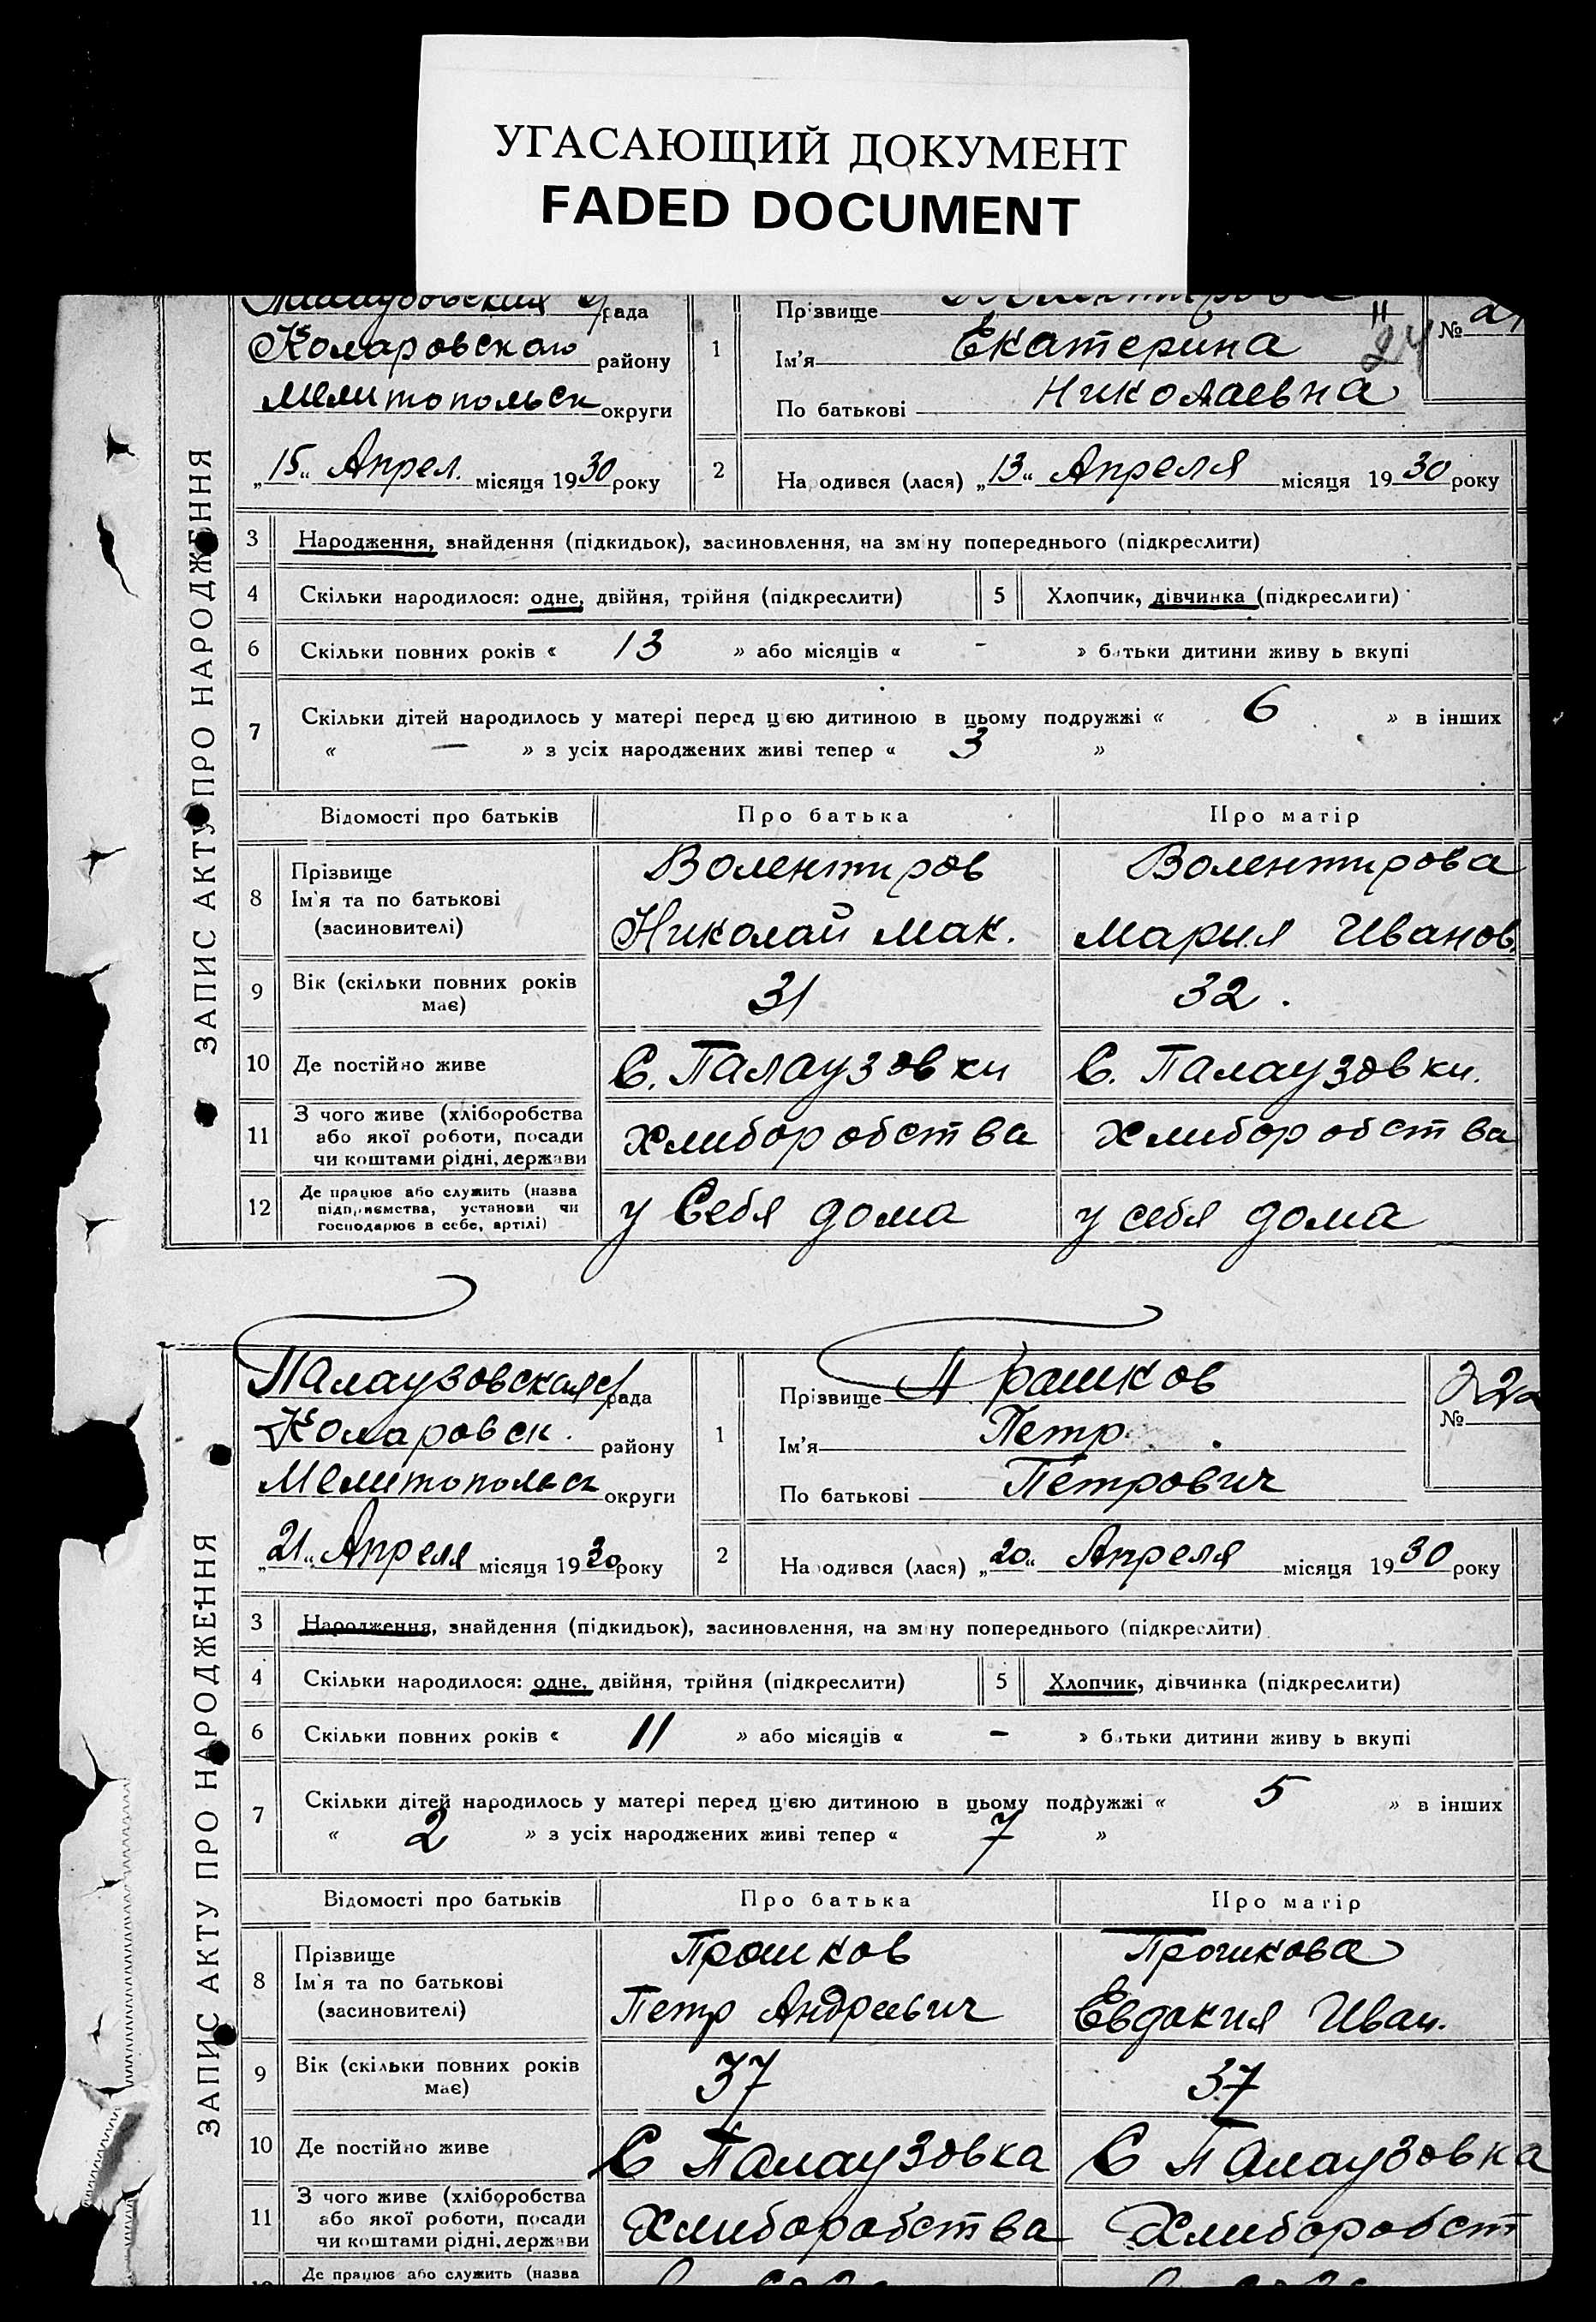 УГАСАЮЩИЙ ДОКУМЕНТ
FADED DOCUMENT
ЗАПИС АКТУ ПРО НАРОДЖЕННЯ
рада
Комаровского району
Мелитопольск округи
„15“ Апрел. місяця 1930 року
1
Прізвище
Ім'я Екатерина
По батькові Николаевна
24
№
2
Народився (лася) „13“ Апреля місяця 1930 року
3 Народження, знайдення (підкидьок), засиновлення, на зміну попереднього (підкреслити)
4 Скільки народилося: одне, двійня, трійня (підкреслити) 5 Хлопчик, дівчинка (підкреслити)
6 Скільки повних років « 13 » або місяців « - » батьки дитини живуть вкупі
7 Скільки дітей народилось у матері перед цією дитиною в цьому подружжі « 6 » в інших
« — » з усіх народжених живі тепер « 3 »
Відомості про батьків Про батька Про матір
8 Прізвище Ім'я та по батькові (засиновителі)
Волентиров Волентирова
Николай Мак. Мария Иванов.
9 Вік (скільки повних років має) 31 32.
10 Де постійно живе С. Палаузовки С. Палаузовки.
11 З чого живе (хліборобства
або якої роботи, посади
чи коштами рідні, держави
Хлиборобства Хлиборобства
12 Де працює або служить (назва
підприємства, установи чи
господарює в себе, артілі)
у Себя дома у себя дома
ЗАПИС АКТУ ПРО НАРОДЖЕННЯ
Палаузовская с/рада
Комаровск. району
Мелитопольск округи
„21“ Апреля місяця 1930 року
1
Прізвище Прашков
Ім'я Петр
По батькові Петрович
№ 22
2
Народився (лася) „20“ Апреля місяця 1930 року
3 Народження, знайдення (підкидьок), засиновлення, на зміну попереднього (підкреслити)
4 Скільки народилося: одне, двійня, трійня (підкреслити) 5 Хлопчик, дівчинка (підкреслити)
6 Скільки повних років « 11 » або місяців « - » батьки дитини живуть вкупі
7 Скільки дітей народилось у матері перед цією дитиною в цьому подружжі « 5 » в інших
« 2 » з усіх народжених живі тепер « 7 »
Відомості про батьків Про батька Про матір
8 Прізвище Ім'я та по батькові (засиновителі)
Прошков Прошкова
Петр Андреевич Евдокия Иван.
9 Вік (скільки повних років має) 37 37
10 Де постійно живе С Палаузовка С Палаузовка
11 З чого живе (хліборобства
або якої роботи, посади
чи коштами рідні, держави
Хлиборобства Хлиборобст
Де працює або служить (назва